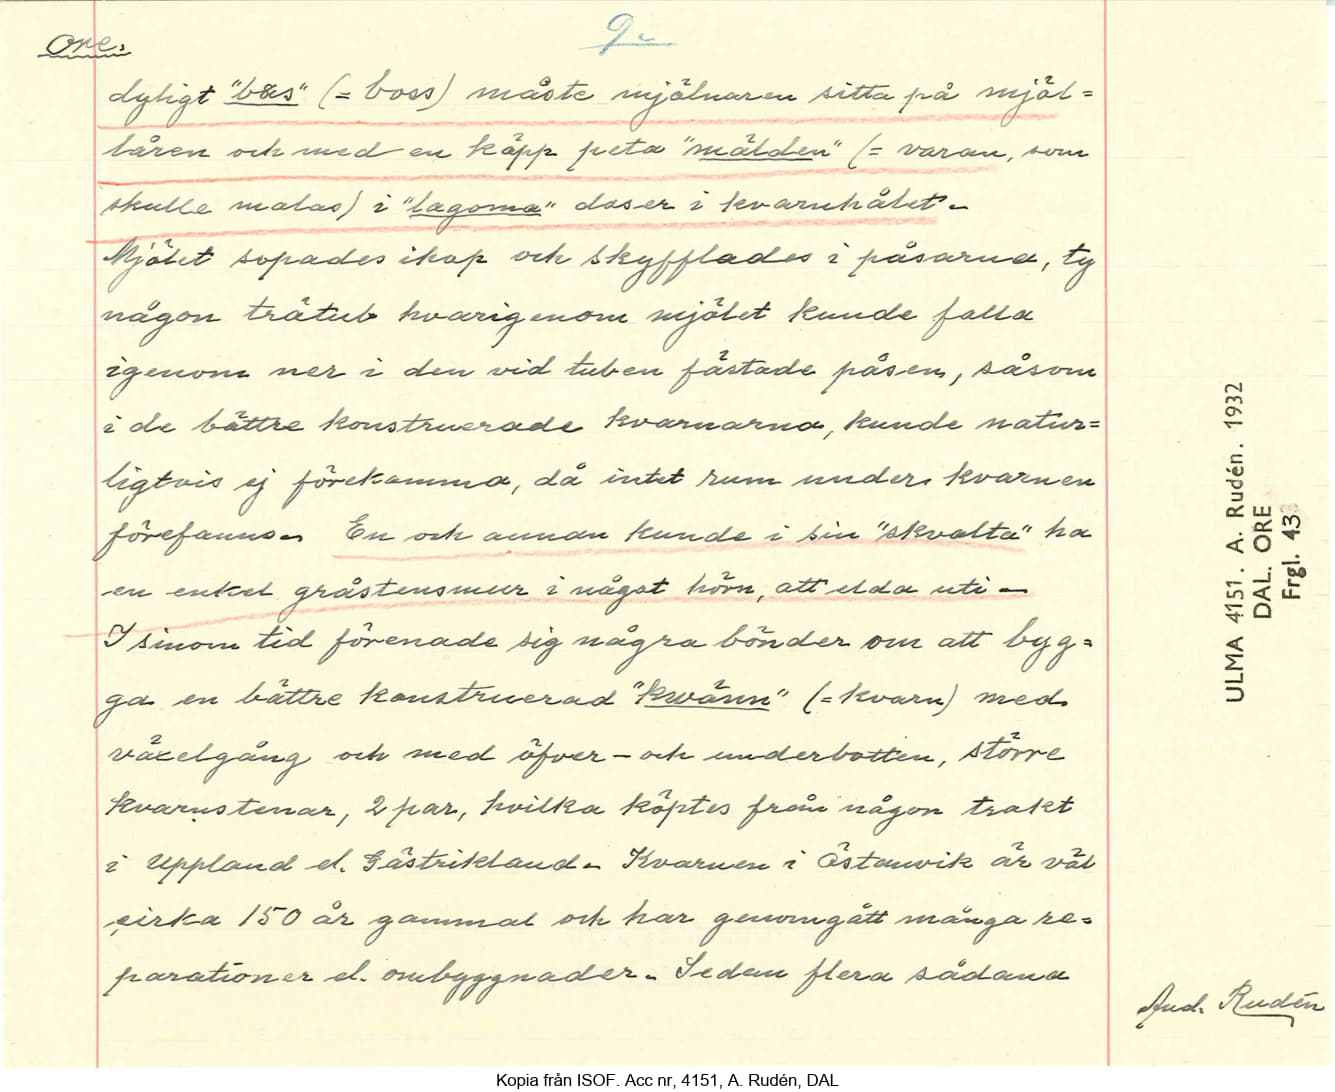 Ore.
9.
dyligt "bås" (= boss) måste mjölnaren sitta på mjöl=
låren och med en käpp peta "mälden" (= varan, som
skulle malas) i "lagoma" doser i kvarnhålet.
Mjölet sopades ihop och skyfflades i påsarna, ty
någon trätub hvarigenom mjölet kunde falla
igenom ner i den vid tuben fästade påsen, såsom
i de bättre konstruerade kvarnarna, kunde natur=
ligtvis ej förekomma, då intet rum under kvarnen
förefanns. En och annan kunde i sin "skvalta" ha
en enkel gråstensmur i något hörn, att elda uti.
I sinom tid förenade sig några bönder om att byg=
ga en bättre konstruerad "kwänn" (= kvarn) med
växelgång och med öfver- och underbotten, större
kvarnstenar, 2 par, hvilka köptes från någon trakt
i Uppland el. Gästrikland. Kvarnen i Östanvik är väl
cirka 150 år gammal och har genomgått många re=
parationer el. ombyggnader. Sedan flera sådana
And. Rudén
ULMA 4151. A. Rudén. 1932
DAL. ORE
Frgl. 43
Kopia från ISOF. Acc nr, 4151, A. Rudén, DAL